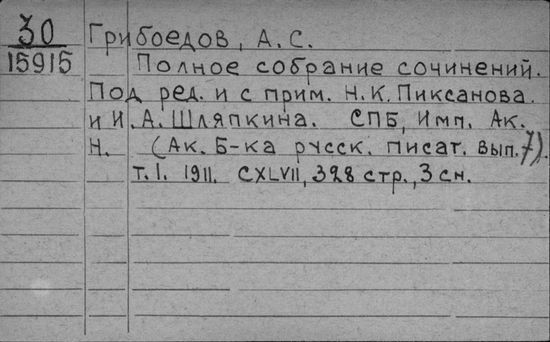 30
15915
Грибоедов, А. С.
Полное собрание сочинений.
Под ред. и с прим. Н. К. Пиксанова.
и И. А. Шляпкина. СПБ, Имп. Ак.
Н. (Ак. Б-ка русск. писат. Вып. 7).
т. I. 1911. CXLVII, 328 стр., 3 сн.